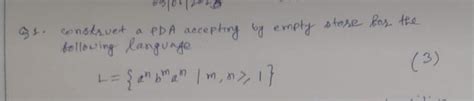 Q1. construct a PDA accepting by empty store for the
following language
L = {aⁿ bᵐ aⁿ | m, n ≥, 1}
(3)